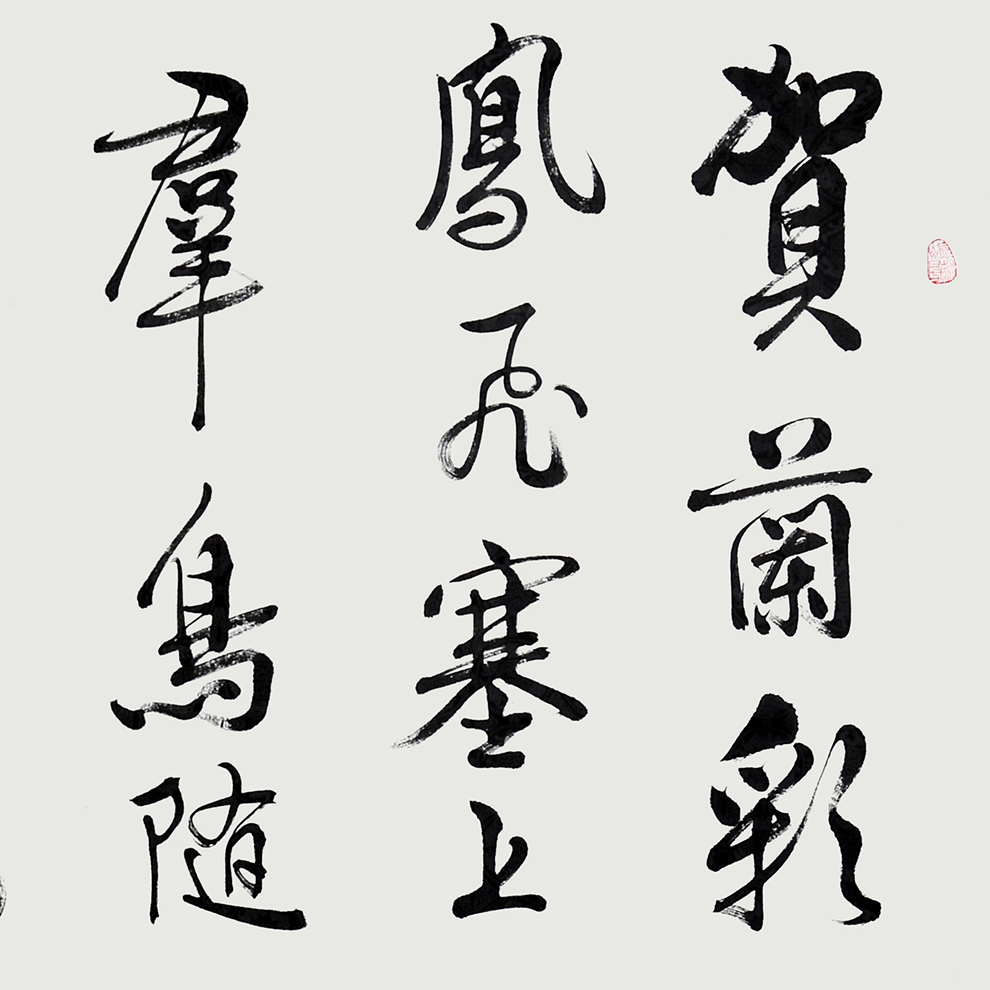 賀蘭彩
鳳飛塞上
羣鳥隨